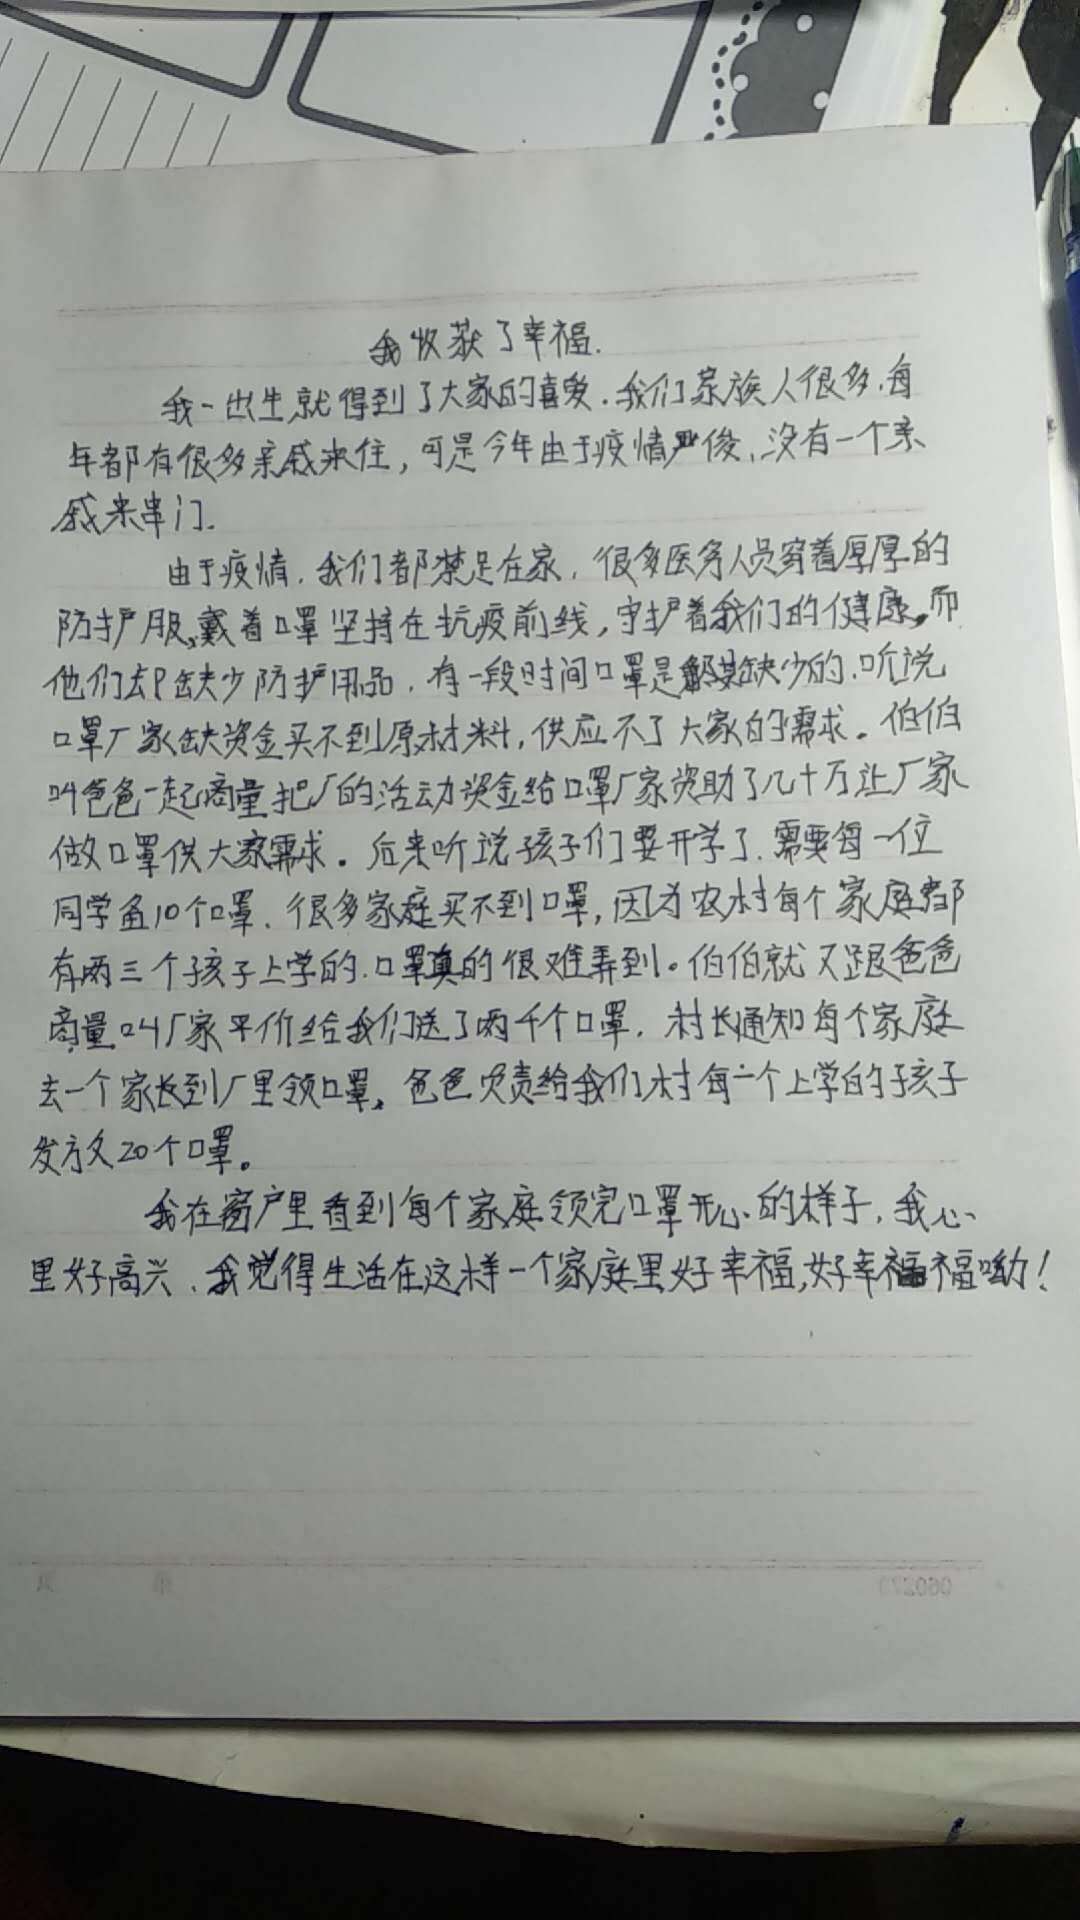 我收获了幸福.
我一出生就得到了大家的喜爱.我们家族人很多,每
年都有很多亲戚来往,可是今年由于疫情严俊,没有一个亲
戚来串门.
由于疫情,我们都禁足在家,很多医务人员穿着厚厚的
防护服,戴着口罩坚持在抗疫前线,守护着我们的健康,而
他们却缺少防护用品,有一段时间口罩是缺少的,听说
口罩厂家缺资金买不到原材料,供应不了大家的需求。伯伯
叫爸爸一起商量把厂的活动资金给口罩厂家资助了几十万让厂家
做口罩供大家需求。后来听说孩子们要开学了,需要每一位
同学备10个口罩,很多家庭买不到口罩,因为农村每个家庭都
有两三个孩子上学的,口罩真的很难弄到。伯伯就又跟爸爸
商量叫厂家平价给我们送了两千个口罩,村长通知每个家庭
去一个家长到厂里领口罩,爸爸负责给我们村每一个上学的孩子
发放20个口罩。
我在窗户里看到每个家庭领完口罩开心的样子,我心
里好高兴,我觉得生活在这样一个家庭里好幸福,好幸福福呦!
060223